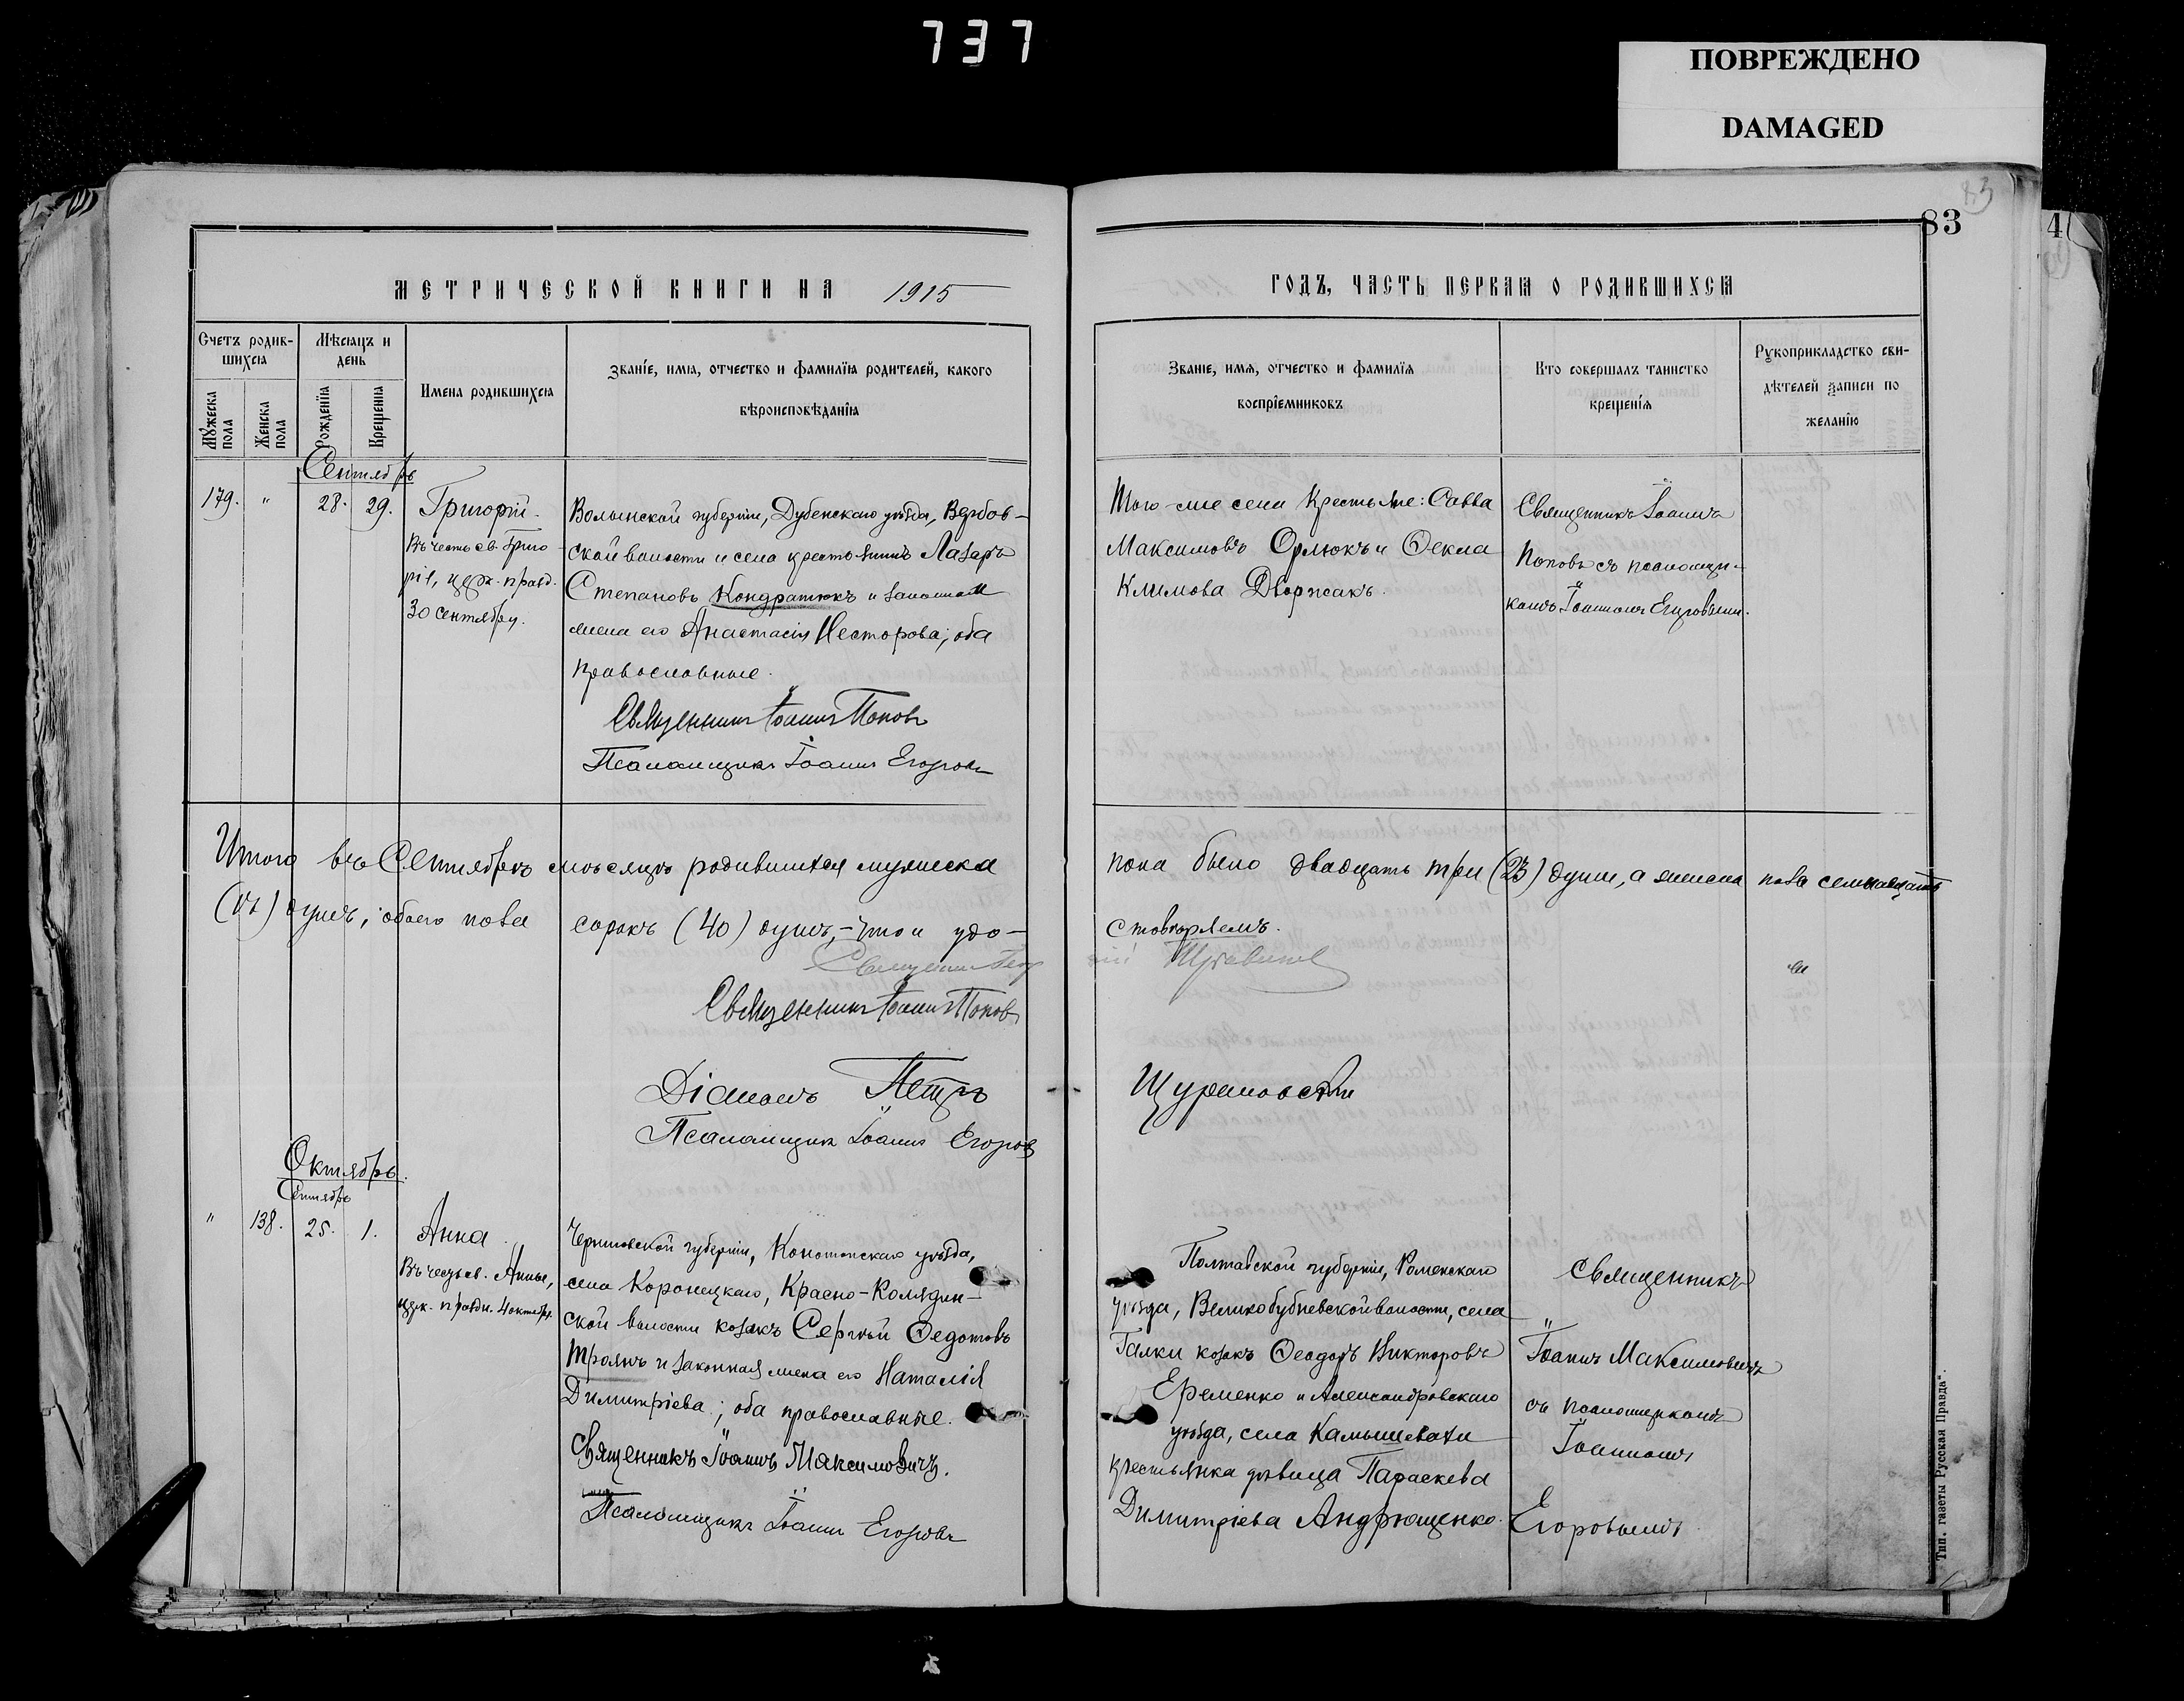 737
ПОВРЕЖДЕНО
DAMAGED
83
4
МЕТРИЧЕСКОЙ КНИГИ НА 1915
Счетъ родив-
шихся
Мѣсяцъ и
день
Мужеска
пола
Женска
пола
Рожденія
Крещенія
Имена родившихся
Званіе, имя, отчество и фамилія родителей, какого
вѣроисповѣданія
Сентябрь
179. " 28. 29. Григорій.
Въ честь св. Григо-
рія, церк. празд.
30 сентября.
Волынской губерніи, Дубенскаго уѣзда, Вербов-
ской волости и села крестьянинъ Лазарь
Степановъ Кондратюкъ и законная
жена его Анастасія Несторова; оба
православные.
Священникъ Іоаннъ Поповъ
Псаломщикъ Іоаннъ Егоровъ
Итого въ Сентябрѣ мѣсяцѣ родившихся мужеска
(17) душъ, обоего пола сорокъ (40) душъ, – что и удо-
Священникъ Іоаннъ Поповъ
Діаконъ Петръ
Псаломщикъ Іоаннъ Егоровъ
Октябрь.
Сентябрь
" 138. 25. 1. Анна.
Въ честь св. Анны,
церк. праздн. 4 октября.
Черниговской губерніи, Конотопскаго уѣзда,
села Коронецкаго, Красно-Колядин-
ской волости козакъ Сергѣй Ѳедотовъ
Троянъ и законная жена его Наталія
Димитріева; оба православные.
Священникъ Іоаннъ Максимовичъ.
Псаломщикъ Іоаннъ Егоровъ
ГОДЪ, ЧАСТЬ ПЕРВАЯ О РОДИВШИХСЯ
Званіе, имя, отчество и фамилія
воспріемниковъ
Кто совершалъ таинство
крещенія
Рукоприкладство сви-
дѣтелей записи по
желанію
Того-же села крестьяне: Савва
Максимовъ Орлюкъ и Ѳекла
Климова Дворжакъ.
Священникъ Іоаннъ
Поповъ съ псаломщи-
комъ Іоанномъ Егоровымъ.
пола было двадцать три (23) души, а женска пола семнадцать
стовѣряемъ.
Щурановскій
Полтавской губерніи, Роменскаго
уѣзда, Великобубневской волости, села
Галки козакъ Ѳеодоръ Викторовъ
Еременко и Александровскаго
уѣзда, села Камышевахи
крестьянка дѣвица Параскева
Димитріева Андрющенко.
Священникъ
Іоаннъ Максимовичъ
съ псаломщикомъ
Іоанномъ
Егоровымъ.
Тип. газеты "Русская Правда".